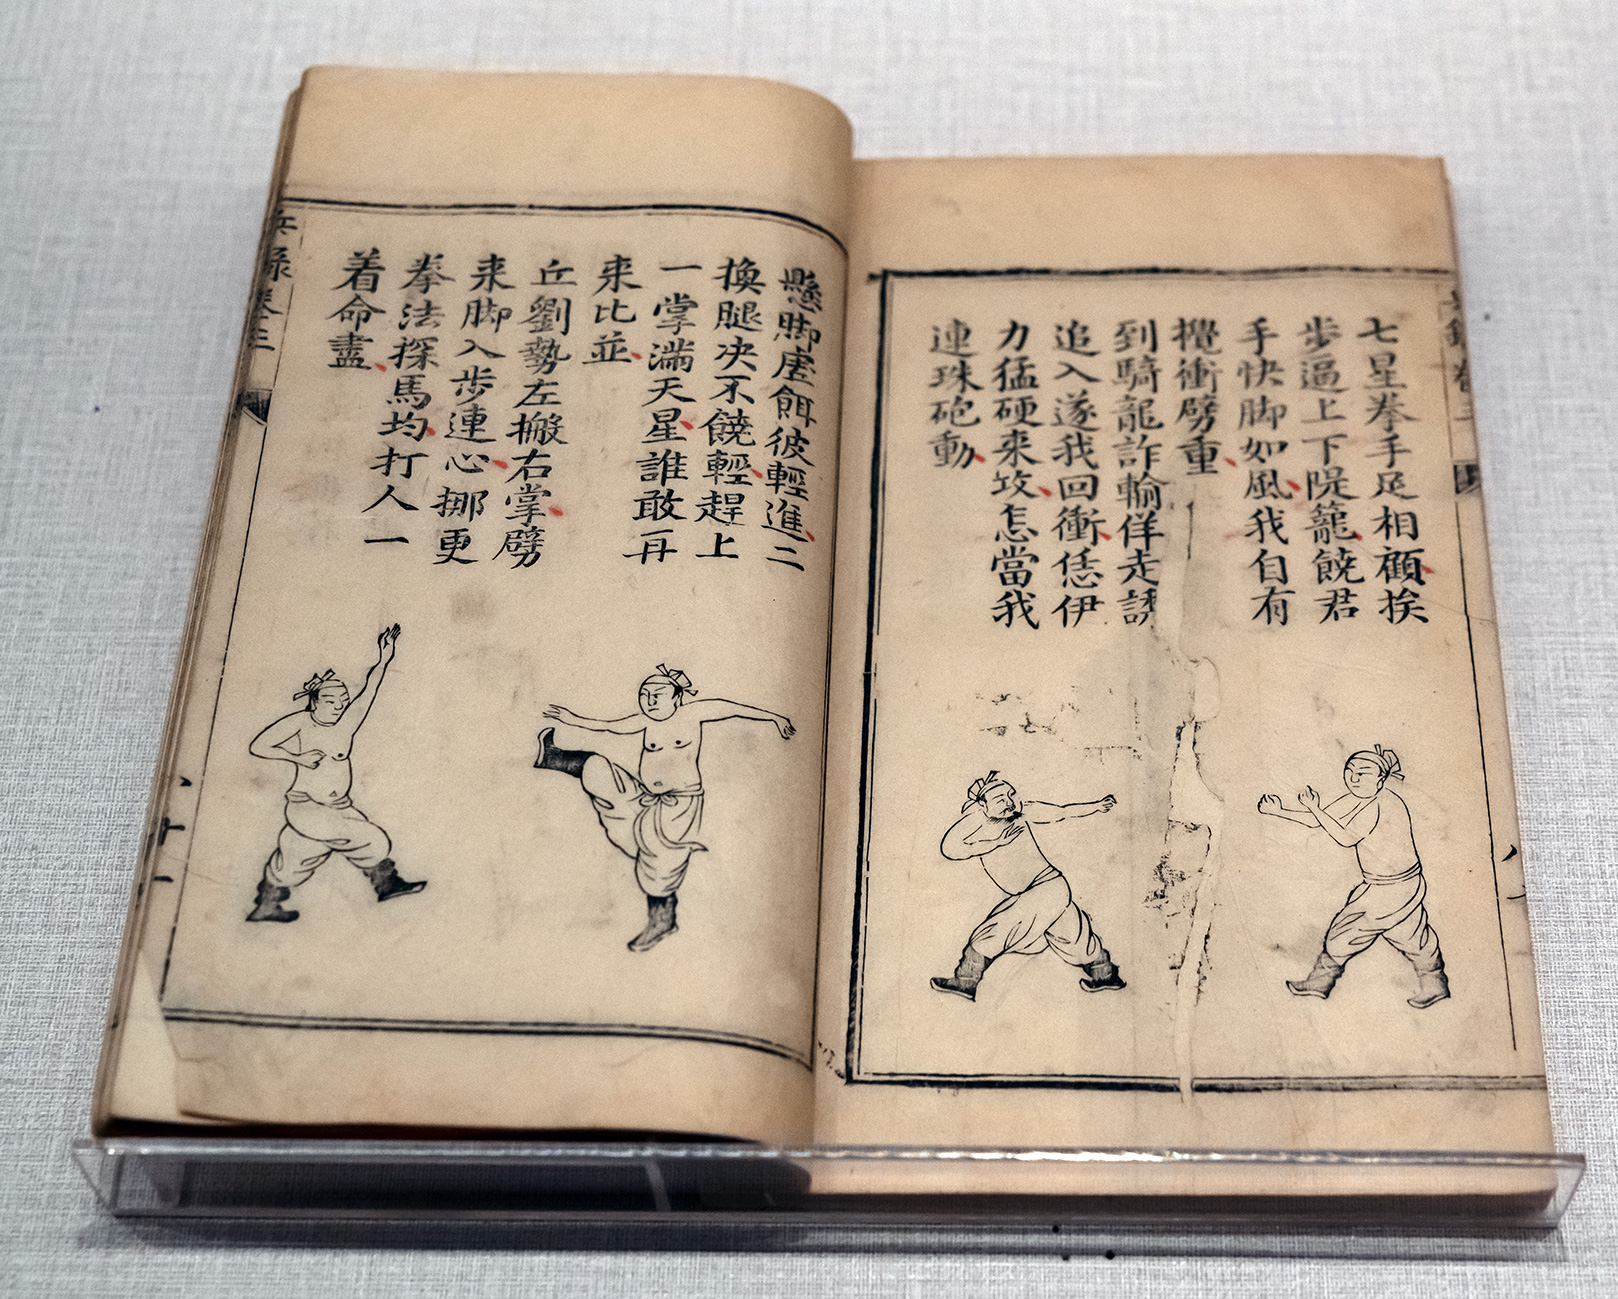 七星拳手足相顧挨
步逼上下隄籠饒君
手快脚如風我自有
攪衝劈重
到騎龍詐輸佯走誘
追入遂我回衝恁伊
力猛硬来攻怎當我
連珠砲動
懸脚虚餌彼輕進二
換腿决不饒輕趕上
一掌滿天星誰敢再
来比並
丘劉勢左搬右掌劈
来脚入步連心挪更
拳法探馬均打人一
着命盡
兵録卷三